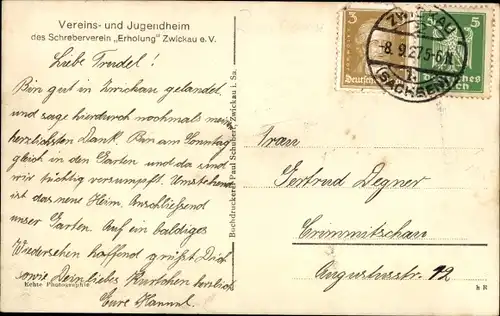 Vereins- und Jugendheim
des Schreberverein „Erholung“ Zwickau e. V.
Liebe Trudel!
Bin gut in Zwickau gelandet
und sage hierdurch nochmals mein
herzlichsten Dank. Bin am Sonntag
gleich in den Garten und da sind
wir tüchtig versumpft. Umstehend
ist das neue Heim. Anschließend
unser Garten. Auf ein baldiges
Wiedersehen hoffend grüßt Dich
sowie Dein liebes Kurtchen herzlich
Eure Hannel.
Echte Photographie
Buchdruckerei Paul Schubert, Zwickau i. Sa.
3
5
5
ZWICKAU
-8.9.27.5-6N
1
(SACHSEN)
Frau
Gertrud Degner
Crimmitschau
Augustusstr. 12
h R